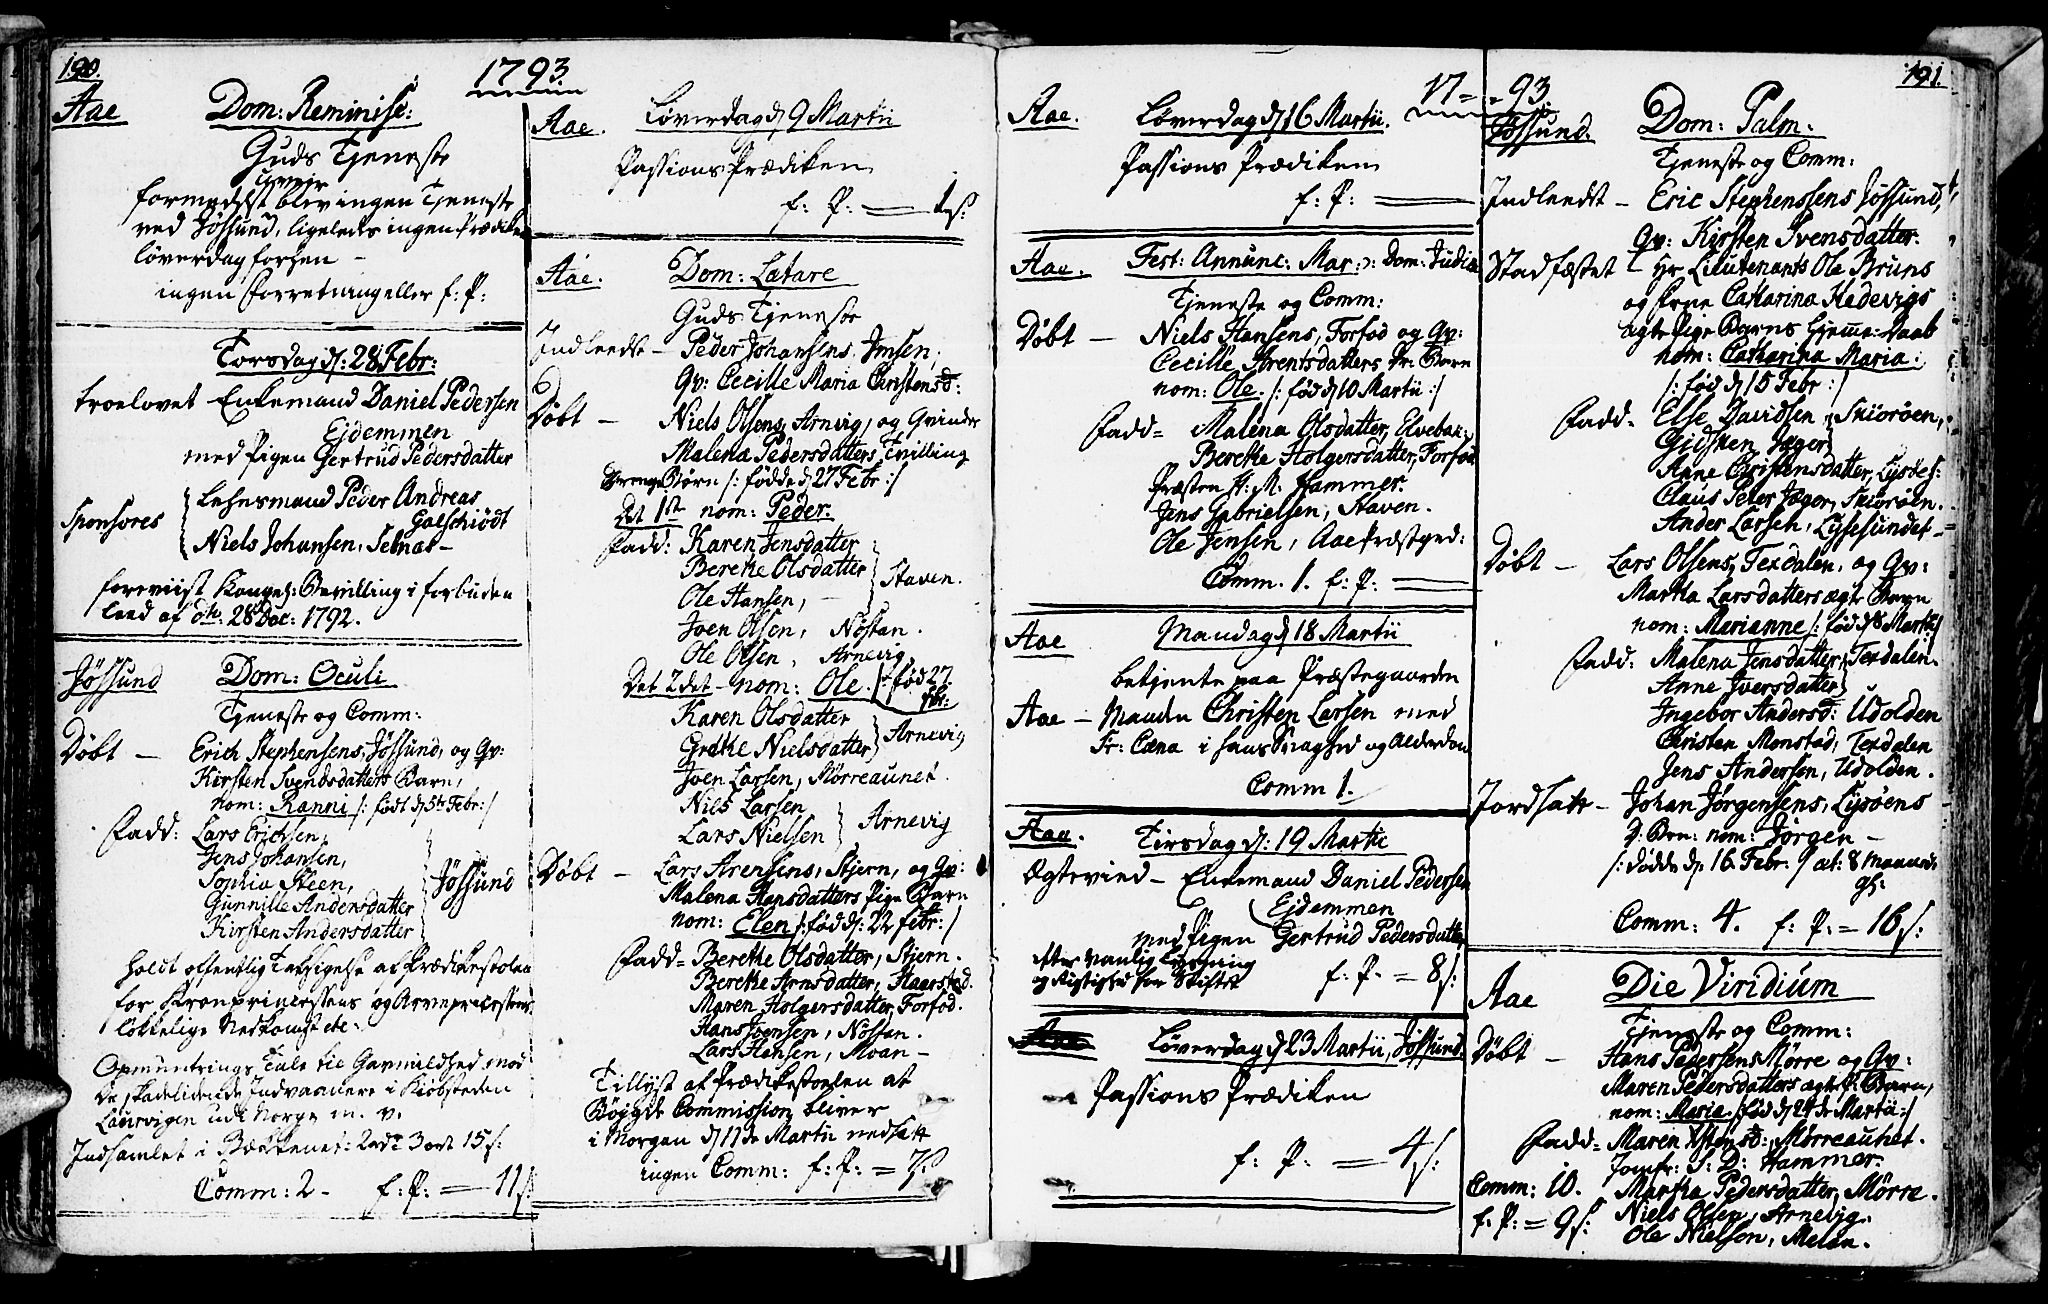 190.
1793
Aae Dom: Reminisc:
Guds Tjeneste
formedelst Uveir blev ingen Tjeneste
ved Jössund, ligeledes ingen Prædiken
löverdag forhen -
ingen Forretning eller f: P:
Torsdag d: 28 Febr:
troelovet Enkemand Daniel Pedersen
Ejdemmen
med Pigen Gertrud Pedersdatter
Sponsores Lehnsmand Peder Andreas
Galschiödt
Niels Johansen, Selnæs -
foreviist Kongel: Bevilling i forbuden
leed af dto 28 Dec: 1792.
Jössund Dom: Oculi
Tjeneste og Comm:
Döbt - Erich Stephensens, Jössund, og Qv:
Kirsten Svendsdatters Barn,
nom: Ranni /: födt d 5te Febr: /
Fadd: Lars Erichsen,
Jens Johansen,
Sophia Steen,
Gunnille Andersdatter
Kirsten Andersdatter
Jössund
holdt offentlig Taksigelse af Prædikestolen
for Kronprincessens og Arveprincessens
lökkelige Nedkomst etc:
Opmuntrings Tale til Gavmildhed mod
de skadelidende Indvaanere i Kiöbsteden
Laurvigen udi Norge m. v.
Indsamlet i Bækkenet: 2 rdr 3 ort 15 s:
Comm: 2 - f: P: = 11 s:
Aae. Löverdag d, 9 Martii
Passions Prædiken
f: P: = 1 s:
Aae. Dom: Lætare
Guds Tjeneste
Indleedt - Peder Johansens Jmsen,
Qv: Cecille Maria Christensd:
Döbt - Niels Olsens, Arnevig, og Qvinde
Malena Pedersdatters Tvilling
Drenge Börn /: födde d 27 Febr :/
Det 1ste nom: Peder.
Fadd: Karen Jensdatter
Berethe Olsdatter
Ole Hansen,
Haven.
Joen Olsen, Nöstan.
Ole Olsen, Arnevig.
Det 2det - nom: Ole. /: föd 27.
Fbr:
Karen Olsdatter
Grethe Nielsdatter
Arnevig
Joen Larsen, Mörreaunet.
Niels Larsen
Lars Nielsen
Arnevig
Döbt - Lars Arensens, Stjern, og Qv:
Malena Hansdatters Pige Barn
nom: Elen /: föd d: 22 febr: /
Fadd = Berethe Olsdatter, Stjern.
Berethe Arnsdatter, Haarstad.
Maren Holgersdatter, Forfod.
Hans Joensen, Nöstan.
Lars Hansen, Moan -
Tillyst af Prædikestolen at
Böygde Commission bliver
i Morgen d 11te Martii nedsatt
ingen Comm: f: P: = 7 s:
17 = = 93
191.
Aae. Löverdag d, 16 Martii.
Passions Prædiken
f: P: =
Aae. Fest: Annunc: Mar: ɔ: Dom: Judica
Tjeneste og Comm:
Döbt - Niels Hansens, Forfod og Qv:
Cecille Arentsdatters Dr: Barn
nom: Ole. /: föd d 10 Martii :/
Fadd = Malena Olsdatter, Elvebak:
Berethe Holgersdatter, Forfod
Præsten H: M: Hammer.
Jens Gabrielsen, Haven.
Ole Jensen, Aae Præstgrd:
Comm. 1. f: P: =
Aae Mandag d, 18 Martii
betjente paa Præstegaarden
Aae - Manden Christen Larsen med
Sr: Cæna i hans Svaghed og Alderdom
Comm 1.
Aae. Tirsdag d: 19 Martii
Ægtevied - Enkemand Daniel Pedersen
Ejdemmen
med Pigen Gertrud Pedersdatter
efter vanlig Lysning
og Rigtighed for Skiftet f: P: = 8 s:
Löverdag d 23 Martii, Jössund
Passions Prædiken
f: P: = 4 s:
Jössund. Dom: Palm:
Tjeneste og Comm:
Indleedt - Eric Stephenssens Jössund,
Qv: Kirsten Svensdatter.
Stadfæstet - Hr Lieutenants Ole Bruns
og Frue Catharina Hedevigs
ægte Pige Barns Hjemme-Daab
nom: Catharina Maria:
/: föd d 15 Febr :/
Fadd = Else Davidsen, Skioröen,
Gidsken Jæger
Anne Christensdatter, Lysöes:
Claus Peter Jæger, Skioröen.
Ander Larsen, Lyssesundet -
Döbt - Lars Olsens, Texdalen, og Qv:
Martha Larsdatters ægte Barn
nom: Marianne /: föd d 8 Martii /
Fadd: Malena Jensdatter, Texdalen.
Anne Iversdatter
Ingebor Andersd: Udolden
Christen Monstad, Texdalen
Jens Andersen, Udolden.
Jordsatt - Johan Jörgensens, Lysöens
D: Brn: nom: Jörgen -
/: dödde d, 16 Febr. / æt: 8 Maaneder
Comm: 4. f: P: = 16 s:
Aae Die Viridium
Tjeneste og Comm:
Döbt - Hans Pedersens Mörre og Qv:
Maren Pedersdatters ægte P: Barn,
nom: Maria. /: föd d 24de Martii :/
Fadd = Maren Xstensd:, Mörreaunet.
Jomfr: S: D: Hammer.
Comm: 10. Martha Pedersdatter, Mörre.
f: P: = 9 s: Niels Olsen, Arnevig.
Ole Nielsen, Melan.